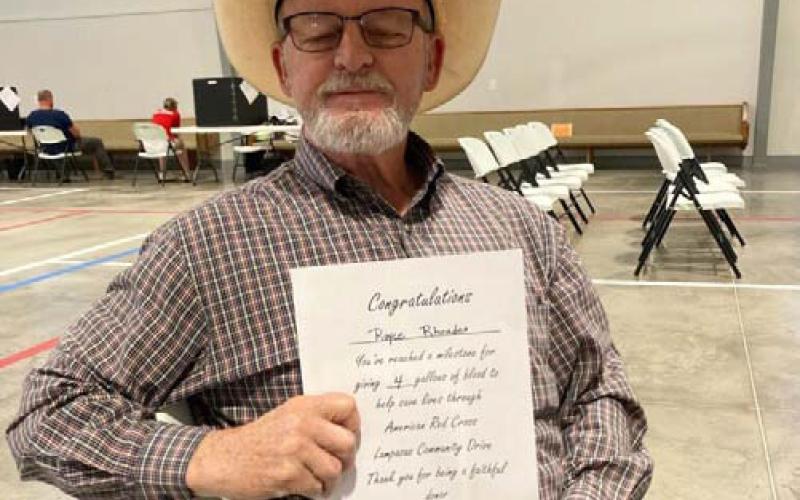 Congratulations
Royce Rhoades
You've reached a milestone for
giving 4 gallons of blood to
help save lives through
American Red Cross
Lampasas Community Drive
Thank you for being a faithful
donor